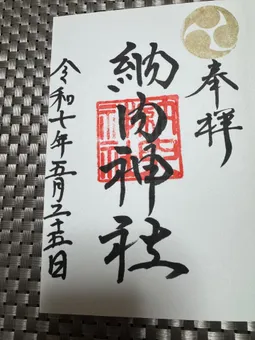 奉拝
納内神社
令和七年五月二十五日